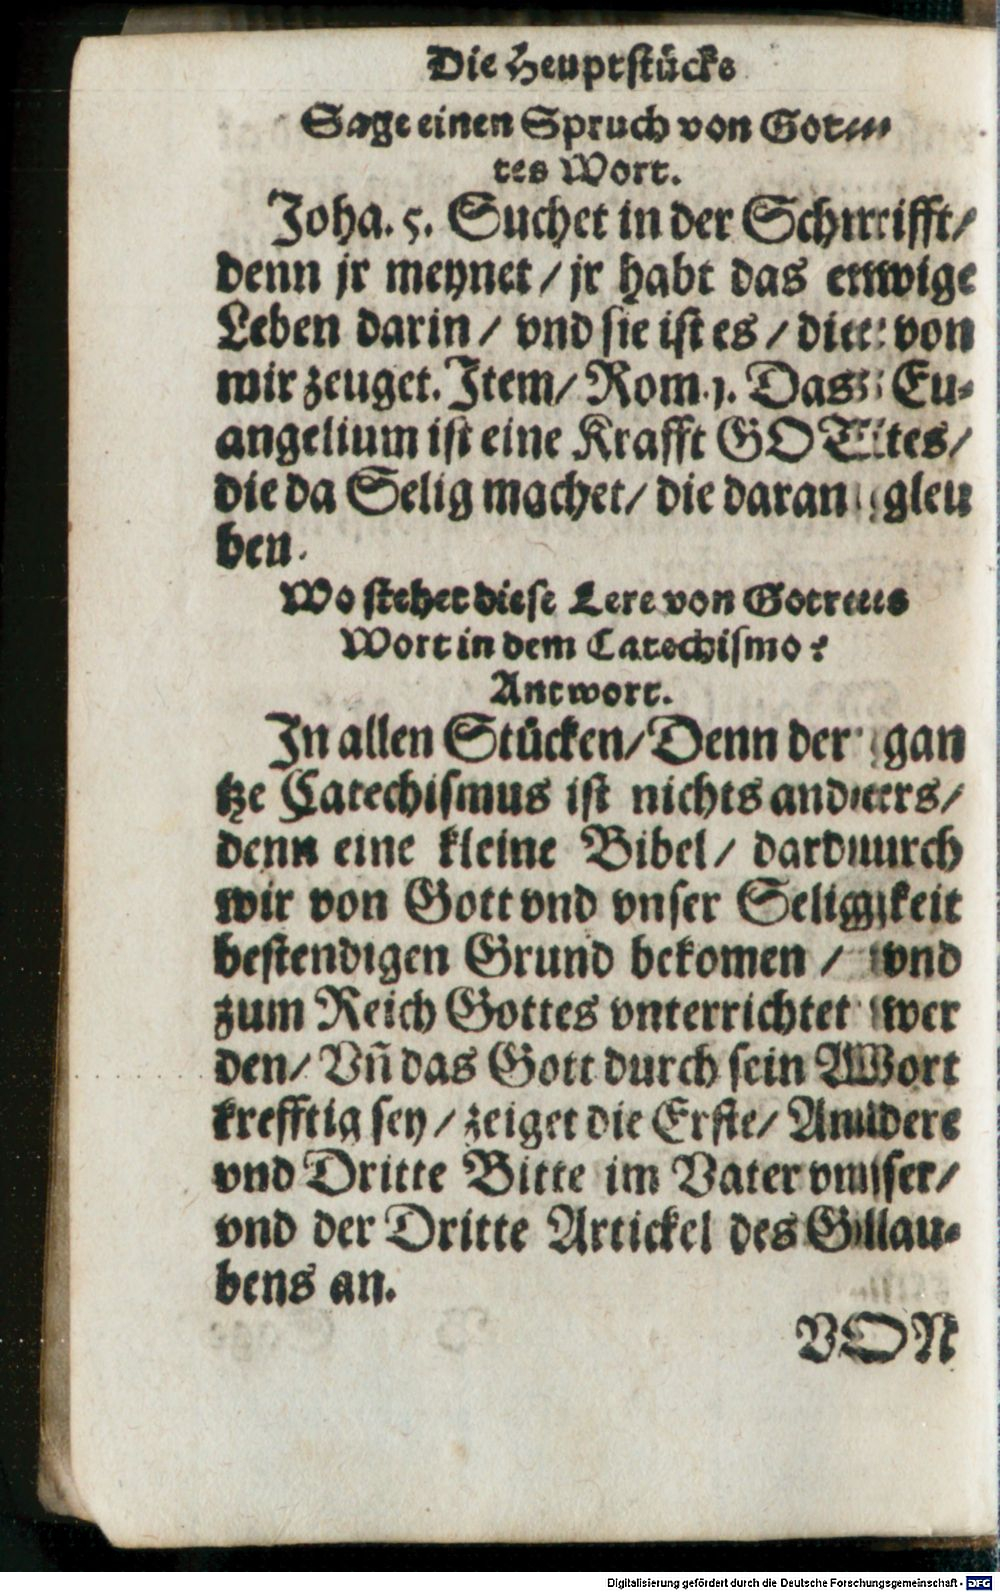 Die Heuptstücke
Sage einen Spruch von Got-
tes Wort.
Joha. 5. Suchet in der Schrifft/
denn jr meynet / jr habt das ewige
Leben darin / vnd sie ist es / die von
mir zeuget. Item/ Rom. 1. Das Eu-
angelium ist eine Krafft GOTtes/
die da Selig machet/ die daran gleu
ben.
Wo stehet diese Lere von Gottes
Wort in dem Catechismo?
Antwort.
In allen Stücken/ Denn der gan
tze Catechismus ist nichts anders/
denn eine kleine Bibel / dardurch
wir von Gott vnd vnser Seligkeit
bestendigen Grund bekomen / vnd
zum Reich Gottes vnterrichtet wer
den/ Vñ das Gott durch sein Wort
krefftig sey / zeiget die Erste/ Andere
vnd Dritte Bitte im Vater vnser/
vnd der Dritte Artickel des Glau-
bens an.
VON
Digitalisierung gefördert durch die Deutsche Forschungsgemeinschaft - DFG